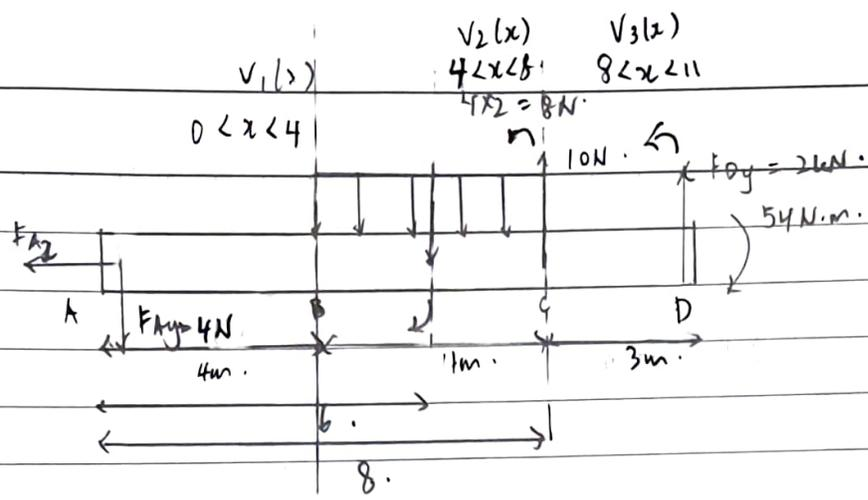 V₂(x) V₃(x)
V₁(x) 4<x<8 8<x<11
4×2 = 8N.
0<x<4
10N. F_Dy = 2kN.
54N.m.
F_Ax
A B C D
F_Ay=4N
4m. 4m. 3m.
6.
8.